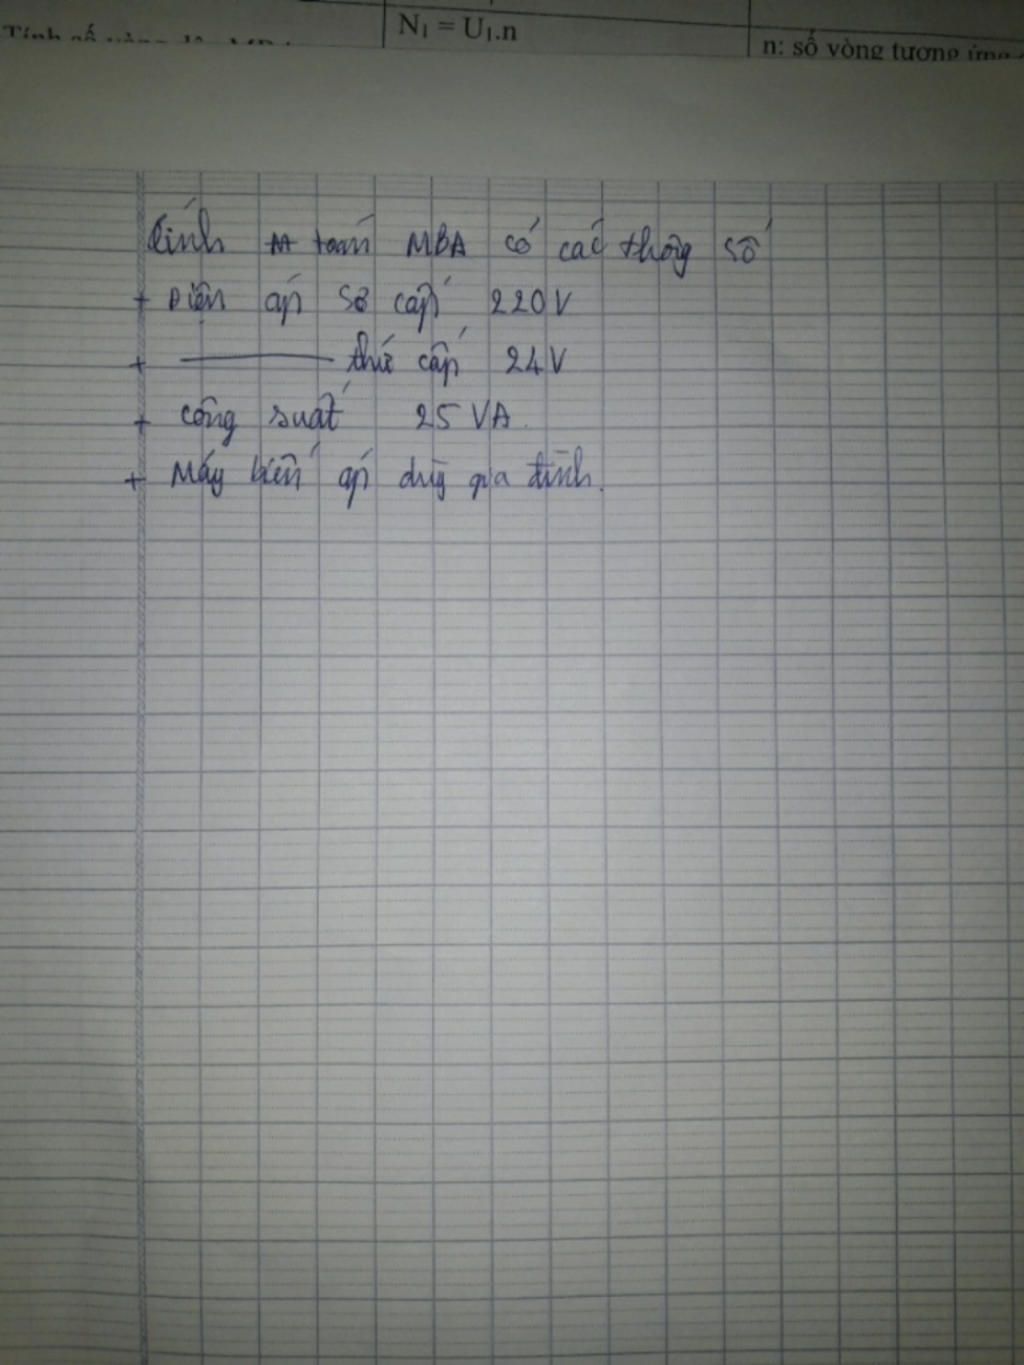 N₁ = U₁.n
n: số vòng tương ứng
Tính toán MBA có các thông số
+ Điện áp sơ cấp 220V
+ ——— thứ cấp 24V
+ công suất 25 VA.
+ Máy biến áp dùng gia đình.